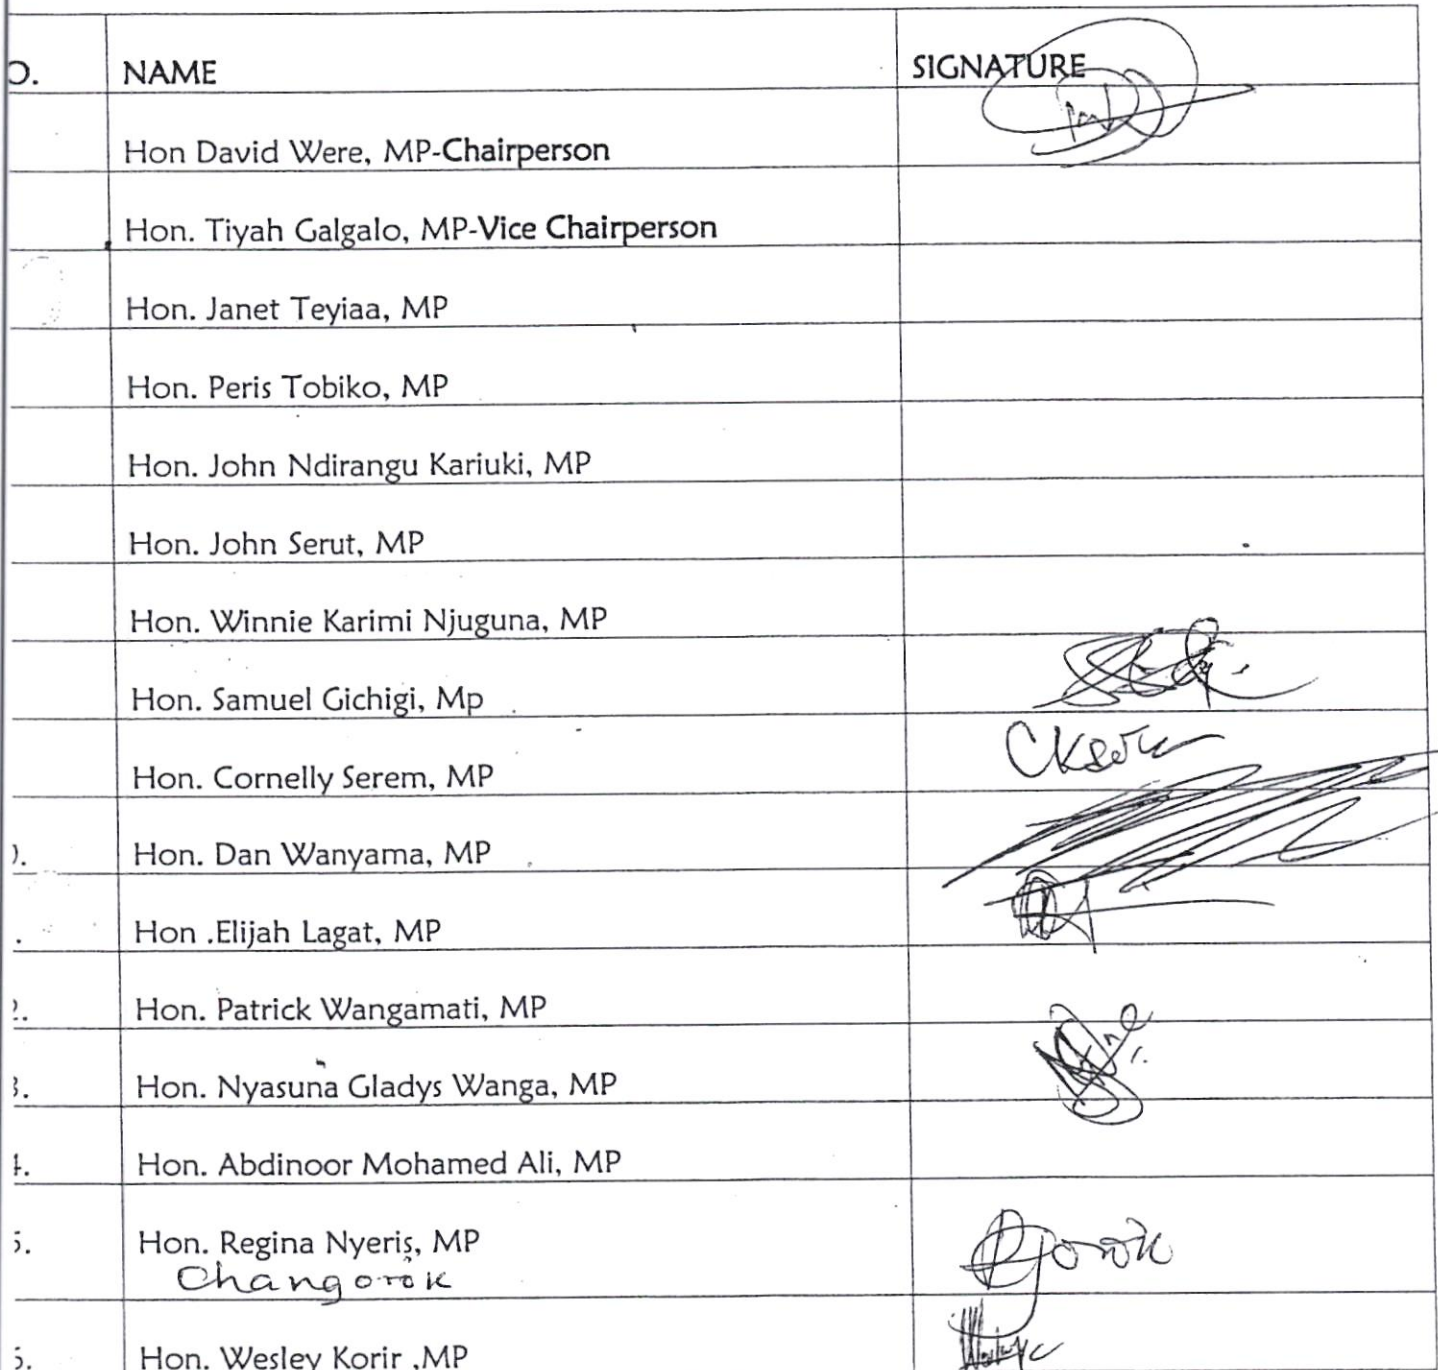 O. NAME SIGNATURE
Hon David Were, MP-Chairperson
Hon. Tiyah Galgalo, MP-Vice Chairperson
Hon. Janet Teyiaa, MP
Hon. Peris Tobiko, MP
Hon. John Ndirangu Kariuki, MP
Hon. John Serut, MP
Hon. Winnie Karimi Njuguna, MP
Hon. Samuel Gichigi, Mp
Hon. Cornelly Serem, MP
Hon. Dan Wanyama, MP
Hon .Elijah Lagat, MP
Hon. Patrick Wangamati, MP
Hon. Nyasuna Gladys Wanga, MP
Hon. Abdinoor Mohamed Ali, MP
5. Hon. Regina Nyeris, MP
Changorok
Hon. Wesley Korir ,MP